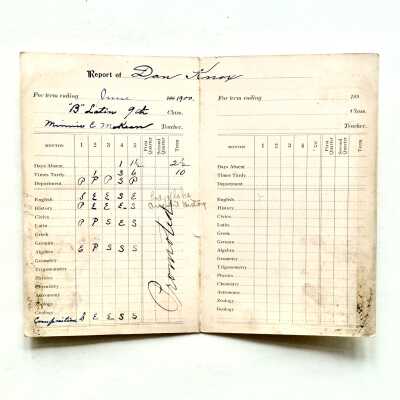 Report of Dan Knox
For term ending June 1900.
"B" Latin 9th Class.
Minnie C McKean Teacher.
MONTHS 1 2 3 4 5 First Quarter Second Quarter Term
Days Absent 1 1½ 2½
Times Tardy 6 3 6 10
Department P P P S P
English S E E S E
History P L E E S
Civics
Latin P P S E S
Greek
German
Algebra E P S S S
Geometry
Trigonometry
Physics
Chemistry
Astronomy
Zoology
Geology
Composition S E E S S
Promoted
Report of
For term ending 189
Class.
Teacher.
MONTHS 1 2 3 4 5 First Quarter Second Quarter Term
Days Absent
Times Tardy
Department
English
History
Civics
Latin
Greek
German
Algebra
Geometry
Trigonometry
Physics
Chemistry
Astronomy
Zoology
Geology